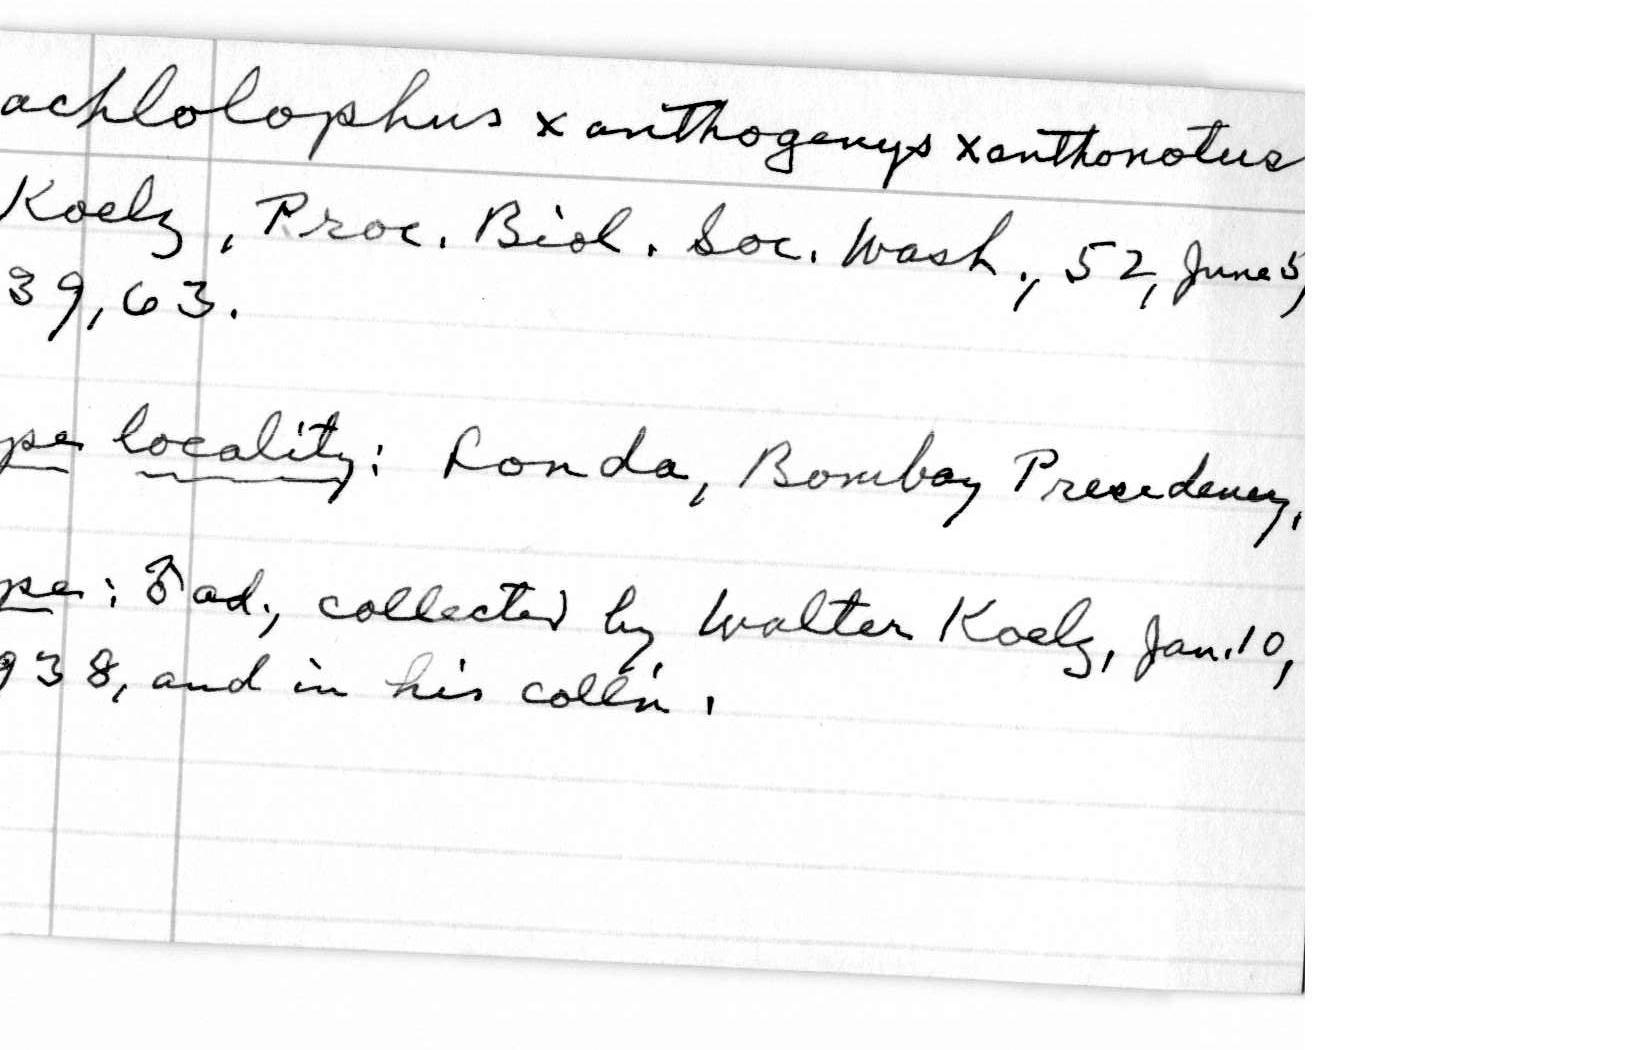 achlolophus xanthogenys xanthonotus
Koelz, Proc. Biol. Soc. Wash., 52, June 5,
39, 63.
pe locality: Londa, Bombay Presidency,
pe: ♂ ad., collected by Walter Koelz, Jan. 10,
938, and in his coll'n.